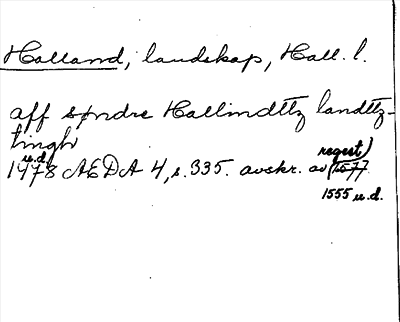 Halland, landskap, Hall. l.
aff søndre Hallindttz landttz-
tingh
u.d. regest)
1478 AEDA 4, s. 335. avskr. av (1577
1555 u.d.